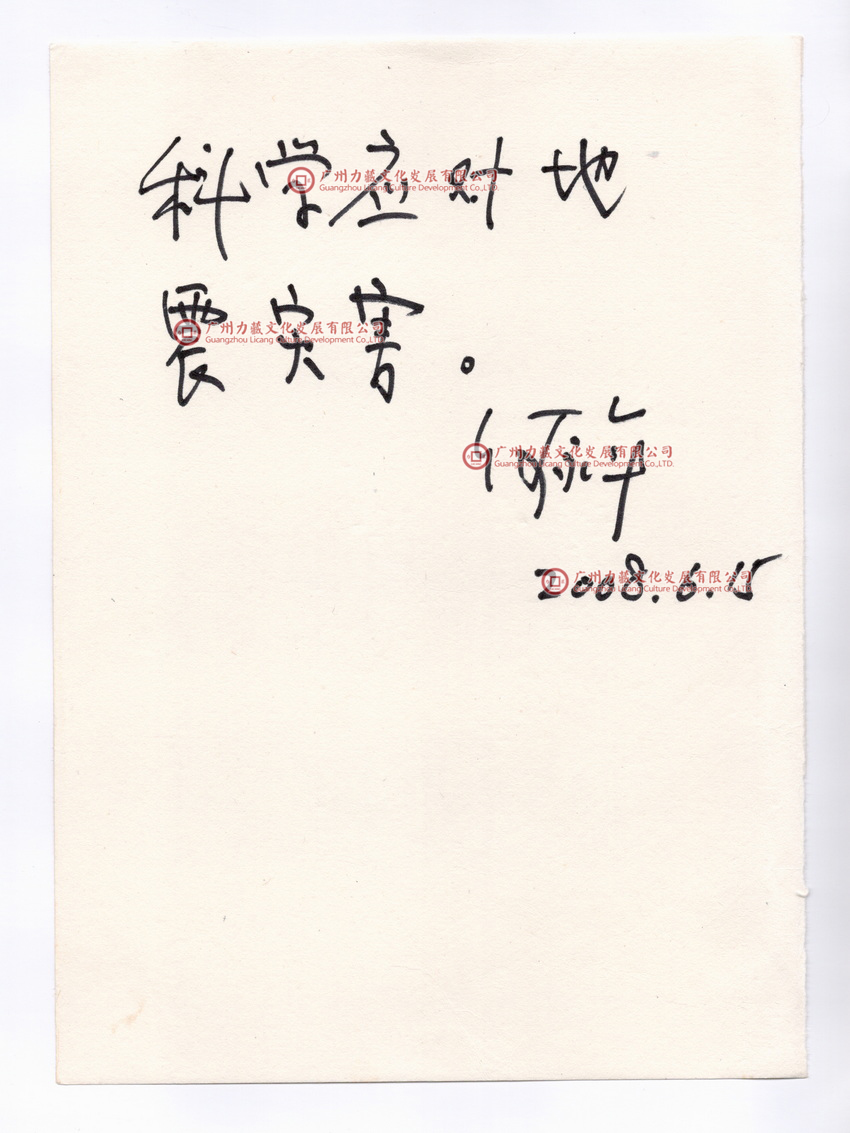 科学应对地
广州力藏文化发展有限公司
Guangzhou Licang Culture Development Co.,LTD.
震灾害。
广州力藏文化发展有限公司
Guangzhou Licang Culture Development Co.,LTD.
何永年
广州力藏文化发展有限公司
Guangzhou Licang Culture Development Co.,LTD.
2008.6.15
广州力藏文化发展有限公司
Guangzhou Licang Culture Development Co.,LTD.